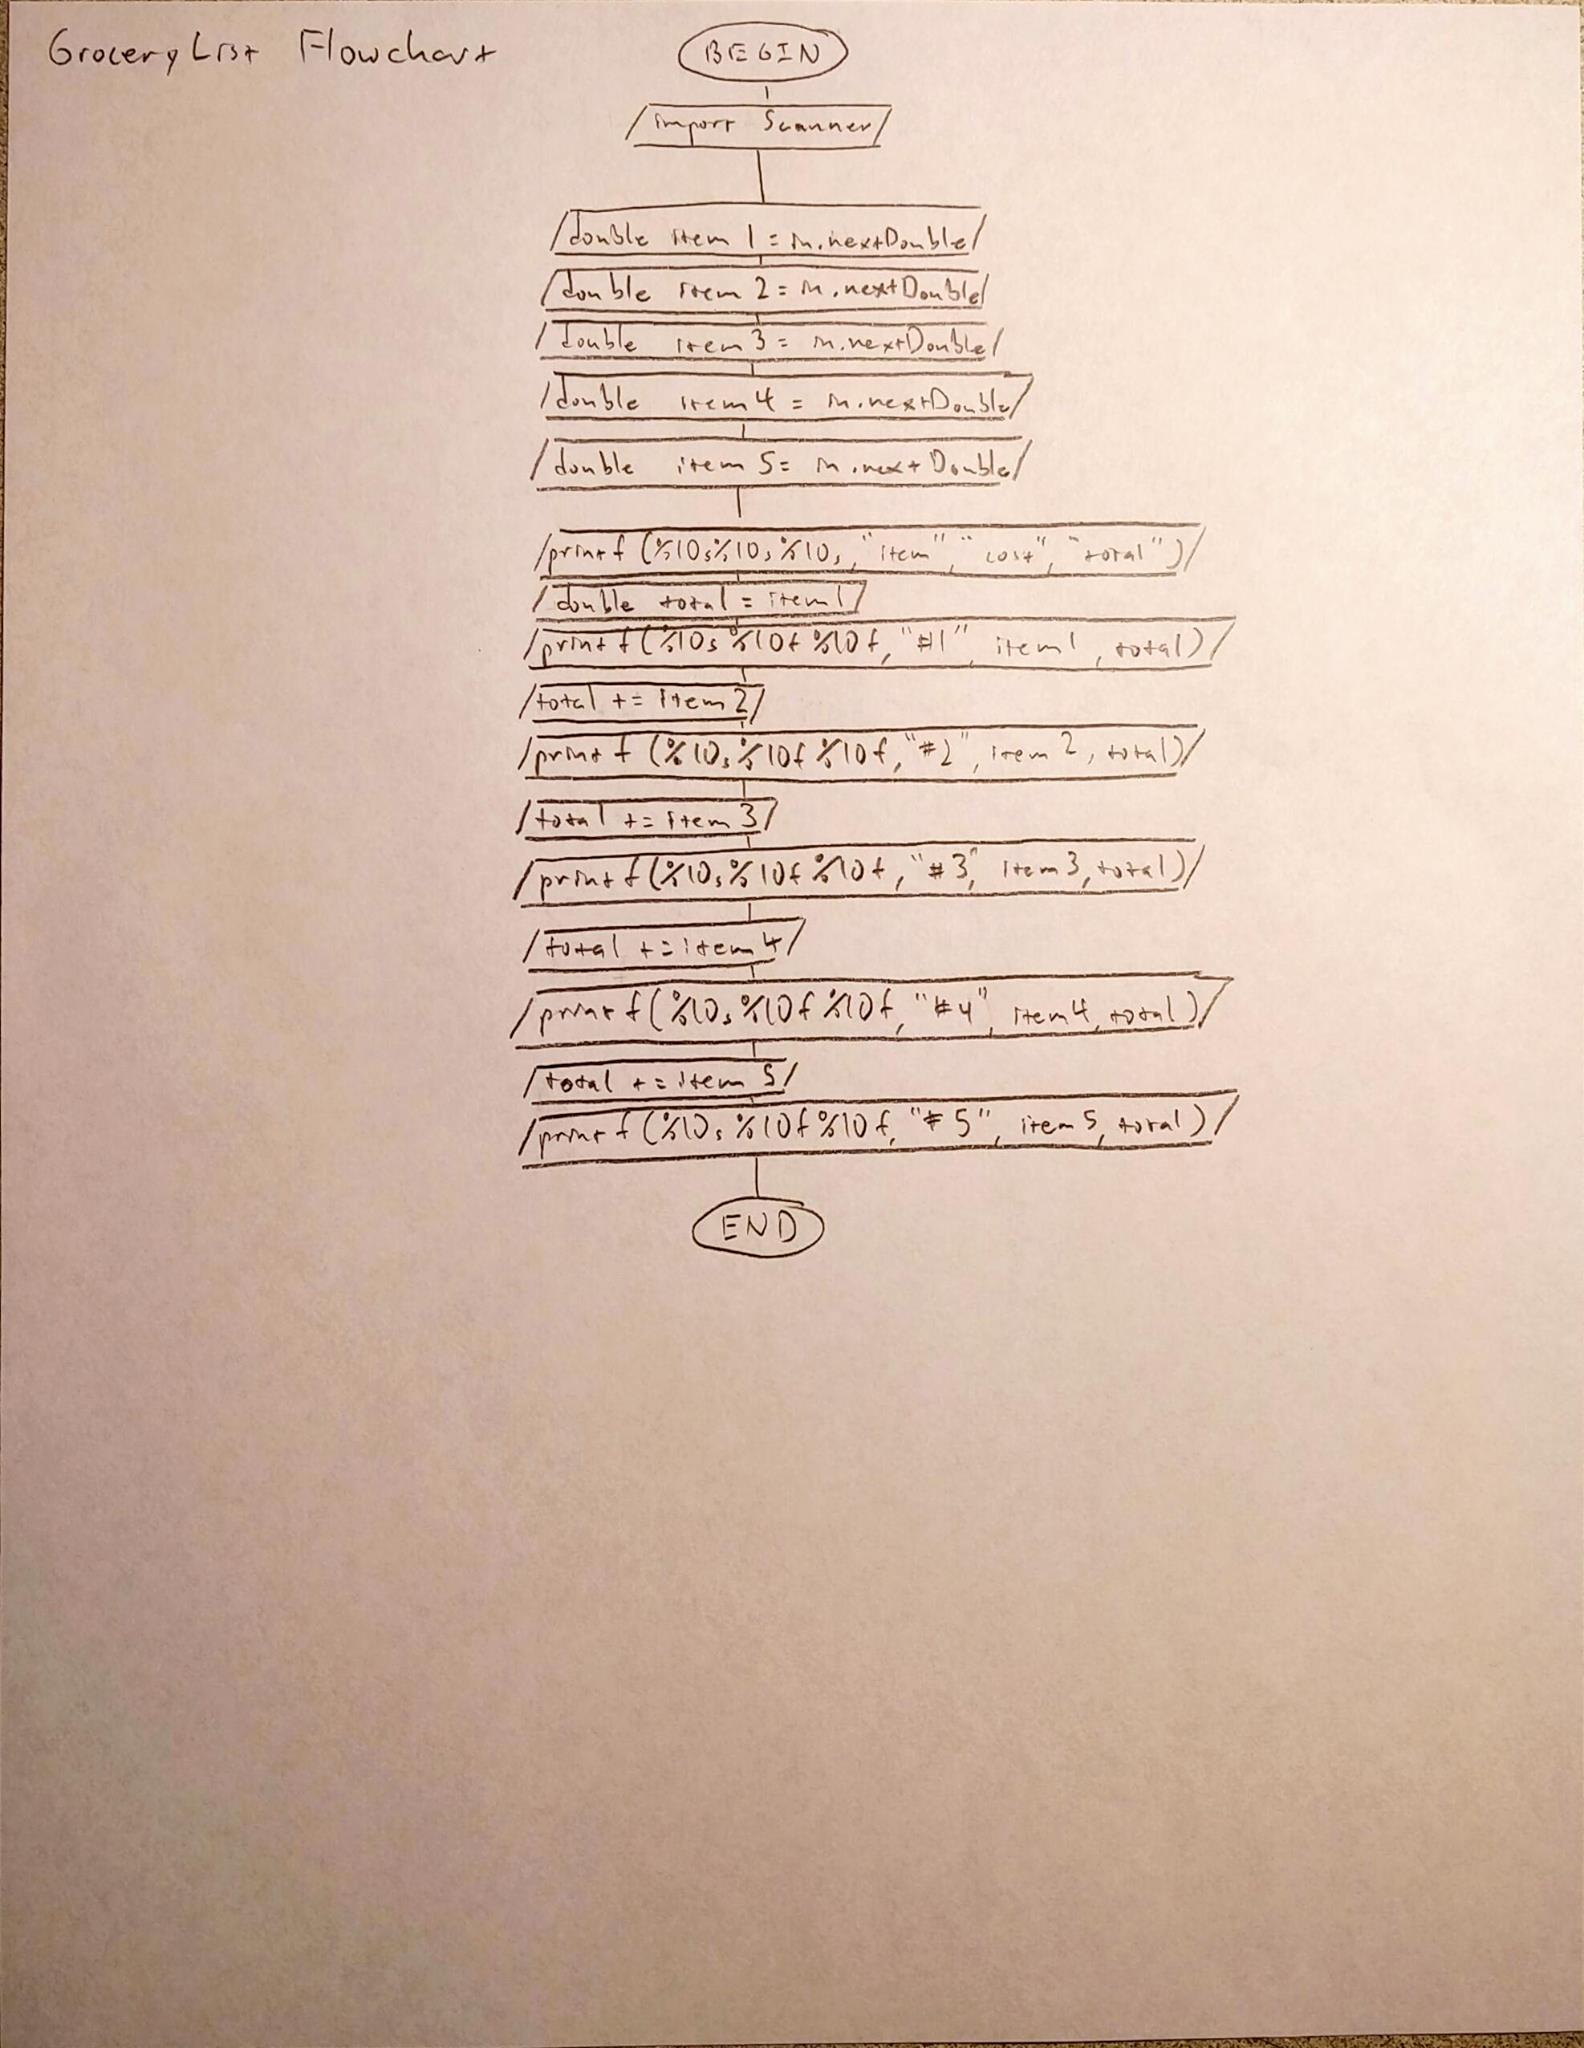 GroceryList Flowchart
BEGIN
import Scanner
double item 1 = in.nextDouble
double item 2 = in.nextDouble
double item 3 = in.nextDouble
double item 4 = in.nextDouble
double item 5 = in.nextDouble
printf (%10s%10s%10s, "item", "cost", "total")
double total = item1
printf (%10s%10f%10f, "#1", item1, total)
total += item 2
printf (%10s%10f%10f, "#2", item 2, total)
total += item 3
printf (%10s%10f%10f, "#3", item 3, total)
total += item 4
printf (%10s%10f%10f, "#4", item 4, total)
total += item 5
printf (%10s%10f%10f, "#5", item 5, total)
END